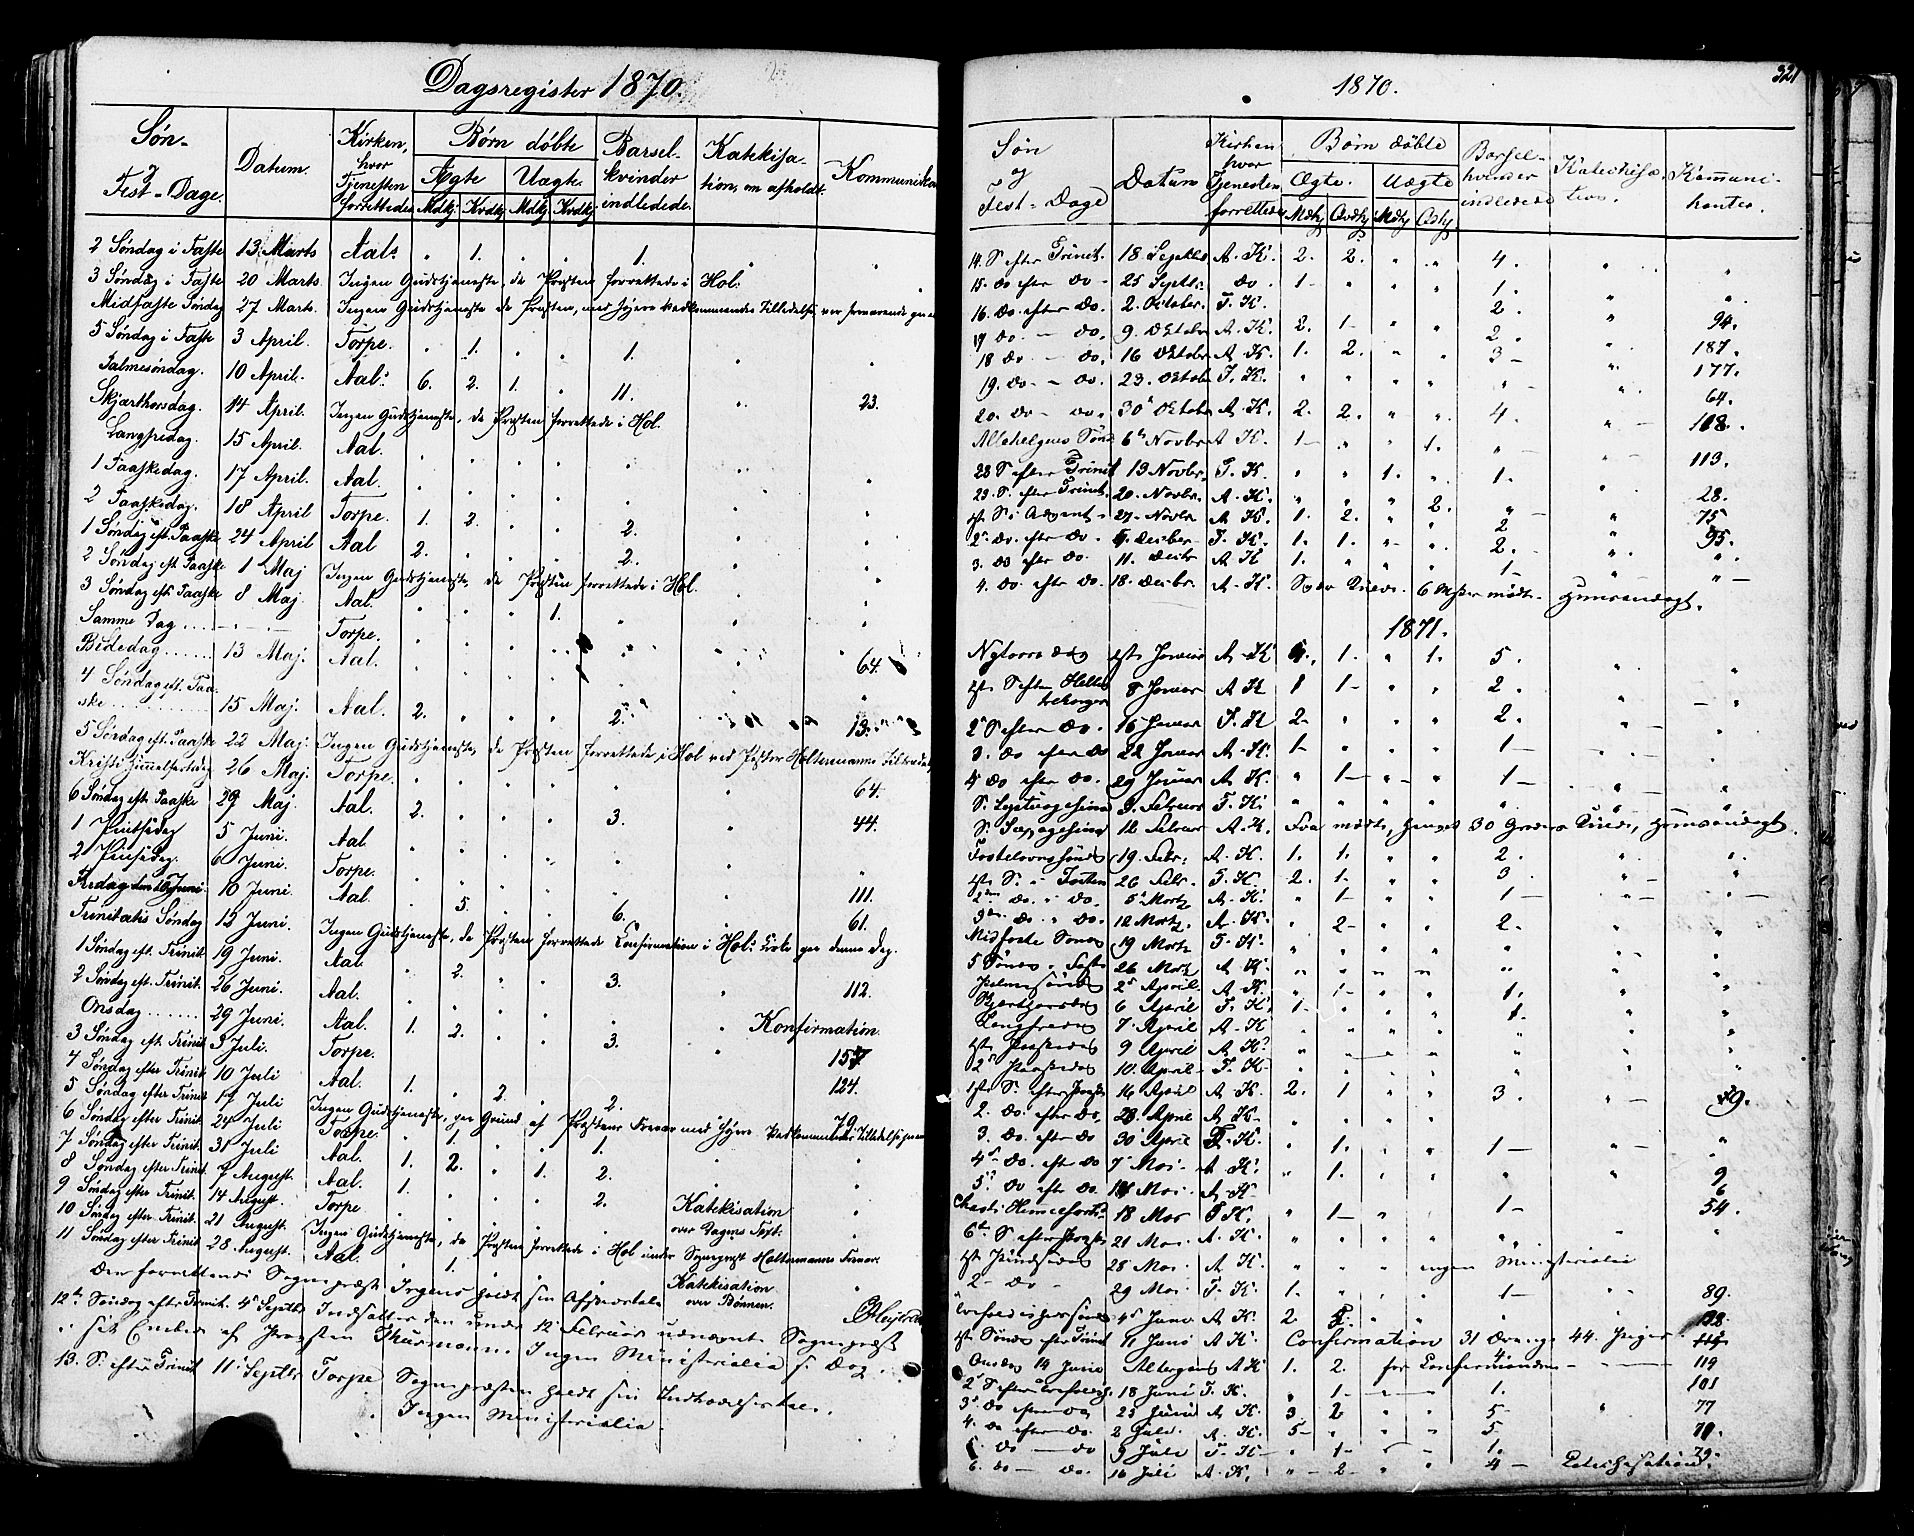 Dagsregister 1870.
Søn- og Fest-Dage. Datum. Kirken, hvor Tjenesten forrettedes Børn døbte Barselkvinder indledede. Katekisation, om afholdt. Kommunika
Ægte Uægte.
Mdkj. Kvdkj. Mdkj. Kvdkj.
2 Søndag i Faste 13 Marts Aal: " 1. " " 1. " "
3 Søndag i Faste 20 Marts. Ingen Gudstjeneste, da Præsten forrettede i Hol:
Midfaste Søndag 27 Marts. Ingen Gudstjeneste da Præsten, med høiere Vedkommendes Tilladelse, var fraværende
5 Søndag i Faste 3 April. Torpe. " 1. " " 1. " "
Palmesøndag. 10 April. Aal: 6. 2. 1. " 11. " 23.
Skjærthorsdag. 14 April. Ingen Gudstjeneste, da Præsten forrettede i Hol.
Langfredag. 15 April. Aal.
1 Paaskedag. 17 April. Aal.
2 Paaskedag. 18 April Torpe. 1. 2. " " 2. " "
1 Søndag eft. Paaske 24 April Aal 2. " " " 2. " "
2 Søndag eft Paaske 1 Maj Ingen Gudstjeneste, da Præsten forrettede i Hol.
3 Søndag eft. Paaske 8 Maj. Aal. " " " 1. " " "
Samme Dag ....... Torpe.
Bededag ...... 13 Maj. Aal. " " " " " " 64.
4 Søndag eft. Paa-
ske ............ 15 Maj. Aal. 2. " " " 2. " 13.
5 Søndag eft. Paaske 22 Maj. Ingen Gudstjeneste, da Præsten forrettede i Hol ved Pastor Holtermanns
Kristi Himmelfartsdag 26 Maj. Torpe. " " " " " " 64.
6 Søndag eft. Paaske 29 Maj. Aal. 2. " " " 3. " 44.
1 Pintsedag 5 Juni. Aal
2 Pintsedag. 6 Juni. Torpe.
Fredag den 10 Juni. 10 Juni. Aal. " 5. " " 6. " 111.
Trinitatis Søndag 12 Juni. Ingen Gudstjeneste, da Præsten forrettede Confirmation i Hol: Kirke paa denne Dag. 61.
1 Søndag eft. Trinit. 19 Juni. Aal " 2. " " 3.
2 Søndag eft. Trinit. 26 Juni. Aal. " " " " " " 112.
Onsdag ....... 29 Juni. Aal. 1. 2. " " " " Konfirmation.
3 Søndag eft. Trinit 3 Juli. Torpe. " " " " 3. " 157
4 Søndag efter Trinit. 10 Juli Aal. 1. " 2. " 2. " 124.
5 Søndag efter Trinit 17 Juli Ingen Gudstjeneste, paa Grund af Præstens Fravær med høiere Vedkommendes Tilladelse 79.
6 Søndag efter Trinit. 24 Juli Torpe. " 1. " " 1.
7 Søndag efter Trinit. 31 Juli Aal. 1. 2. " 1. 2. " "
8 Søndag efter Trinit. 7 August. Aal. 1. " " " 2. " "
9 Søndag efter Trinit. 14 August. Torpe " " " " " Katekisation over Dagens Text. "
10 Søndag efter Trinit. 21 August. Ingen Gudstjeneste, da Præsten forrettede i Hol under Sognepræst Holtermanns Fravær.
11 Søndag efter Trinit 28 August. Aal " 1. " " " Katekisation over Bønnen.
Den forrettende Sognepræst Irgens holdt sin Afskedstale
12te Søndag efter Trinit. 4de Septbr. Indsattes den under 12 Februar udnævnte Sognepræst
sit Embede af Provsten Thurmann. Ingen Ministerialia s. Dag.
13. S. efter Trinit 11 Septbr Torpe Sognepræsten holdt sin Indtrædelsestale.
Ingen Ministerialia.
1870. 321
Søn og Fest-Dage Datum Kirken hvor Tjenesten forrettedes Børn døbte Barselkvinder indledede Katechisation. Kommunikanter.
Ægte. Uægte
Mdkj Qvdkj Mdkj Qvdkj
14. S efter Trinit. 18 Septbr A. K. 2. 2. " " 4. " "
15. do efter do 25 Septbr. do 1- " " " 1. " "
16. do. efter do. 2. October. T. K. " " " " 2. " 94.
17 do. - do. 9. Oktobr A. K. 2. 1- " " 2. " 187.
18 do - do. 16 Oktobr A K. 1. 2. " " 3- " 177.
19. do. - do. 23. Oktobr T. K. " " " " " " 64.
20. do - do. 30 Oktobr A. K. 2. 2. " " 4. " 118.
Allehelgens Sønd 6te Novbr A K. 1- " " 1. " " 113.
22 S efter Trinit 13 Novbr. T. K. " " 1. " 1. " 28.
23. S. efter Trinit. 20. Novbr. A. K. " " " 2. " " 75
1ste S. i Advent. 27. Novbr A K. 1. 2. " " 2 - " 95.
2. do. efter do. 4. Decbr T. K. 1. 1. " " 2. " "
3. do efter do. 11. Decbr A K 1. " " " 1- " "
4. do. efter do. 18. Decbr. A. K. Svær Kulde. 6 Msker mødte. Hjemsendagt.
1871.
Nytaarsdag 1ste Januar A. K 4. 1. " 1. 5. " "
1ste S efter Helletrekonger 8 Januar A K 1 1- " " 2. " "
2 S efter do. 15 Januar T. K 2- " " " 2. " "
3. do efter do 22 Januar A. K. 1- " " " 1- " "
4 do efter do. 29 Januar A K. " 1- " " 1- " "
S. Septuagesima 5. Februar T. K. " " " " " " "
S. Sexagesima 12 Februar A. K. Faa mødte, henved 30 Graders Kulde, Hjemsendagt.
Fastelavns Sønd 19. Febr. A. K. 1. 1. " " 2. " "
1ste S. i Fasten 26 Febr. T. K 2. 1. " " 3 " "
2den do. " do. 5 Marts A. K. " 1- " " 1- " "
3die do. " do 12 Marts. A. K. " 2- " " 2. " "
Midfaste Sønd 19 Marts T. K. " " " " " " "
5 Sønd. i Faste 26 Marts A K. " " " " " " "
Palmesønd 2 April A. K. " 1- " " 1. " "
Skjærtorsdag 6 April T. K. 1- " " " 1. " "
Langfredag 7 April A K " " " " " " "
1ste Paaskedag 9 April A K. " " " " " " "
2. Paaskedag 10. April T. K " " " " " " "
1ste S. efter Paaske 16 April A K. 2. 1 " " 3. " 29.
2. do. efter do. 23. April A K.
3. do. efter do 30 April T. K. " 1. " " 1- " "
4. do. efter do 7 Mai. A K. " 1. " " " " 9
5. do efter do. 14 Mai. A K 6
Christi Himmelfartsd. 18 Mai T K. " 1- " " 1- " 54.
6te S. efter Paaske 21 Mai. A. K. " " " " " " "
1ste Pindsedag 28 Mai A K. " " " ingen Ministerialia
2- do- 29 Mai T. K. 1. " " " 1- " 89.
Trefoldighedssønd 4 Juni A K. 2 1. " " " 128.
1ste Sønd efter Trinit 11 Juni A K Confirmation 31 Drenge 44. Piger.
Onsdag 14 Juni Altergang A K 1. 2. for Confirmanderne 119
2 S efter Trefoldigh. 18 Juni T. K. " 1- " " 1. " 101
3. do efter do 25 Juni A K. 3. 2 " " 5. " 77
4. do efter do. 2 Juli. A. K. 5- " " " 5 70.
5. do - do 9 Juli T- K- " 1- " " 1. 29.
6. do - do. 16 Juli A. K. " 2- " " 4- Catechisation.